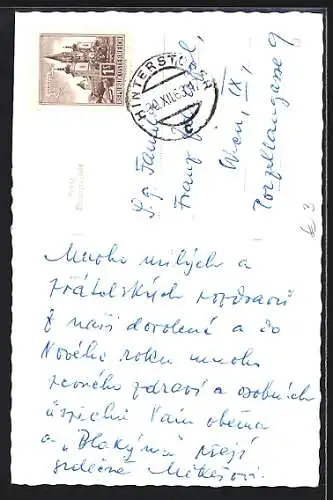 REPUBLIK ÖSTERREICH
HINTERSTODER
P. T. Familie
Franz
Wien, IX,
Porzellangasse 9
Mnoho milých a
přátelských pozdravů
z naší dovolené a do
Nového roku mnoho
pevného zdraví a osobních
úspěchů Vám oběma
a „Blakýma" přejí
srdečně Mikešovi.